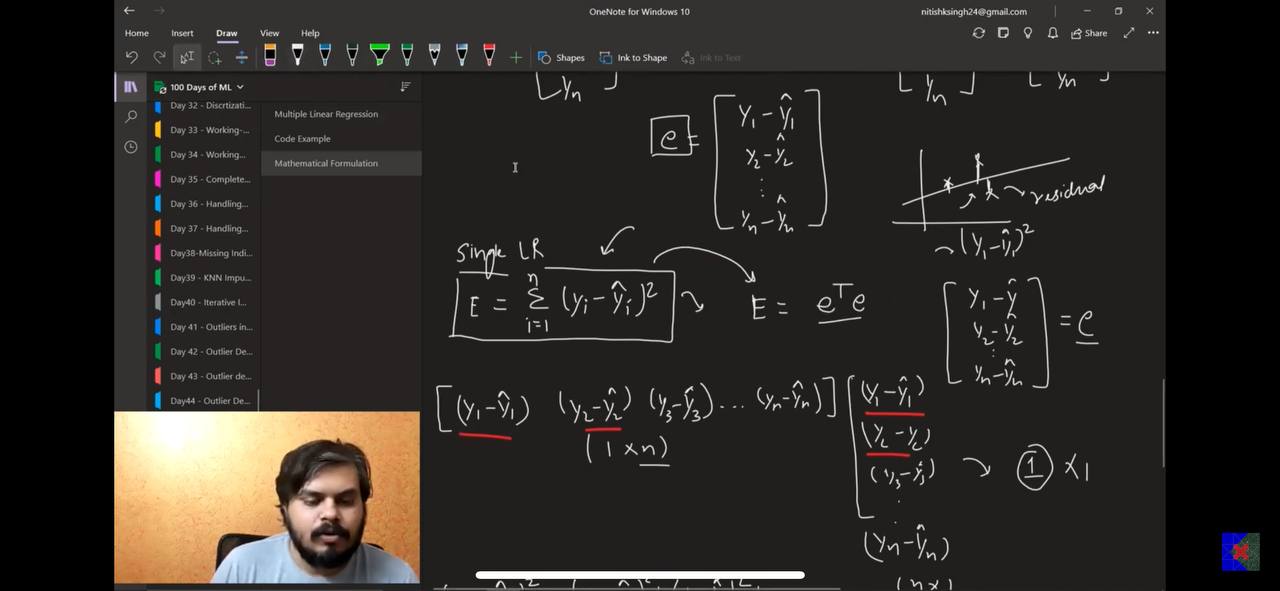 OneNote for Windows 10
nitishksingh24@gmail.com
Home Insert Draw View Help
Share
Shapes Ink to Shape Ink to Text
100 Days of ML
Day 32 - Discrtizati...
Day 33 - Working-...
Day 34 - Working...
Day 35 - Complete...
Day 36 - Handling...
Day 37 - Handling...
Day38-Missing Indi...
Day39 - KNN Impu...
Day40 - Iterative I...
Day 41 - Outliers in...
Day 42 - Outlier De...
Day 43 - Outlier de...
Day44 - Outlier De...
Multiple Linear Regression
Code Example
Mathematical Formulation
yn yn yn
e = [ y1 - ŷ1
y2 - ŷ2
⋮
yn - ŷn ]
residual
(y1 - ŷ1)²
Single LR
E = Σ i=1 n (yi - ŷi)²
E = eᵀe
[ y1 - ŷ
y2 - ŷ2
⋮
yn - ŷn ] = e
[(y1 - ŷ1) (y2 - ŷ2) (y3 - ŷ3) ... (yn - ŷn)]
(1 × n)
[ (y1 - ŷ1)
(y2 - y2)
(y3 - ŷ3)
⋮
(yn - ŷn)
(n×1
1 × 1